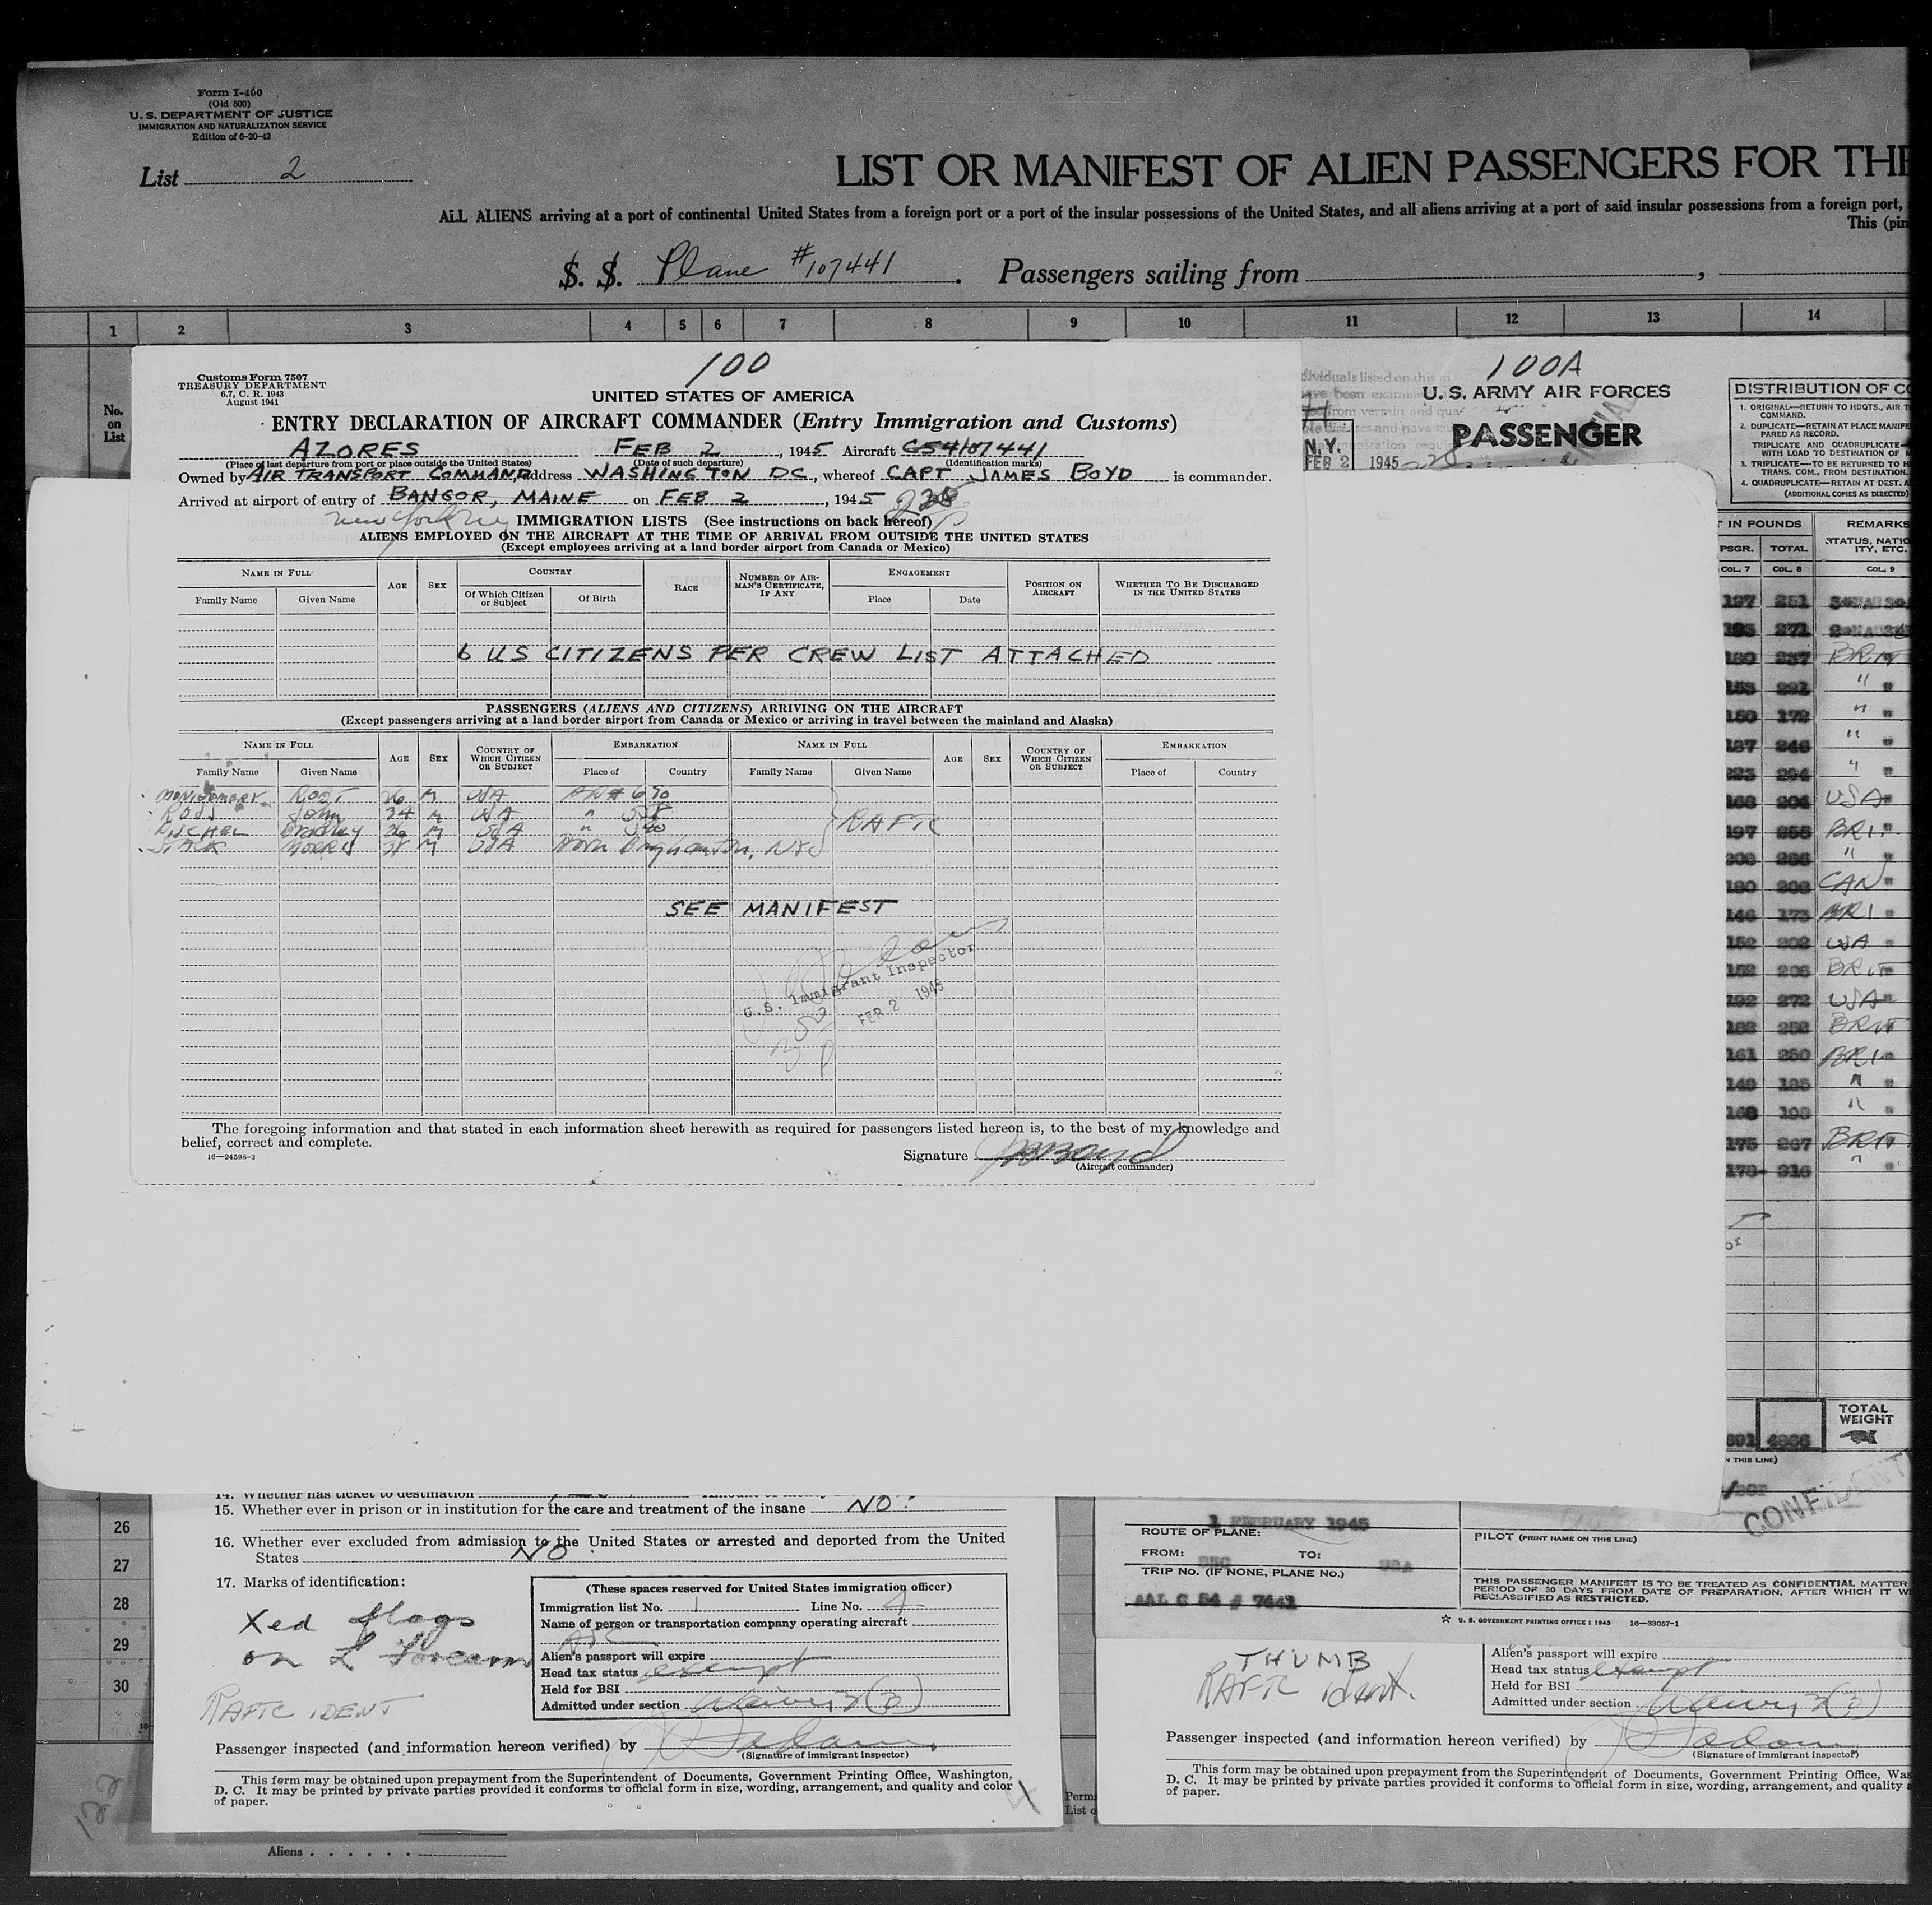 Form I-400
(Old 500)
U. S. DEPARTMENT OF JUSTICE
IMMIGRATION AND NATURALIZATION SERVICE
Edition of 6-20-42
List 2
LIST OR MANIFEST OF ALIEN PASSENGERS FOR THE
ALL ALIENS arriving at a port of continental United States from a foreign port or a port of the insular possessions of the United States, and all aliens arriving at a port of said insular possessions from a foreign port,
This (pin
S. S. Plane #107441. Passengers sailing from ,
1 2 3 4 5 6 7 8 9 10 11 12 13 14
No. on List
100
Customs Form 7507
TREASURY DEPARTMENT
6.7, C. R. 1943
August 1941
UNITED STATES OF AMERICA
ENTRY DECLARATION OF AIRCRAFT COMMANDER (Entry Immigration and Customs)
AZORES FEB 2, 1945 Aircraft C54107441
(Place of last departure from port or place outside the United States) (Date of such departure) (Identification marks)
Owned by AIR TRANSPORT COMMAND, address WASHINGTON DC, whereof CAPT JAMES BOYD is commander.
Arrived at airport of entry of BANGOR, MAINE on FEB 2, 1945
New York NY
IMMIGRATION LISTS (See instructions on back hereof)
ALIENS EMPLOYED ON THE AIRCRAFT AT THE TIME OF ARRIVAL FROM OUTSIDE THE UNITED STATES
(Except employees arriving at a land border airport from Canada or Mexico)
NAME IN FULL AGE SEX COUNTRY RACE NUMBER OF AIRMAN'S CERTIFICATE, IF ANY ENGAGEMENT POSITION ON AIRCRAFT WHETHER TO BE DISCHARGED IN THE UNITED STATES
Family Name Given Name Of Which Citizen or Subject Of Birth Place Date
6 US CITIZENS PER CREW LIST ATTACHED
PASSENGERS (ALIENS AND CITIZENS) ARRIVING ON THE AIRCRAFT
(Except passengers arriving at a land border airport from Canada or Mexico or arriving in travel between the mainland and Alaska)
NAME IN FULL AGE SEX COUNTRY OF WHICH CITIZEN OR SUBJECT EMBARKATION NAME IN FULL AGE SEX COUNTRY OF WHICH CITIZEN OR SUBJECT EMBARKATION
Family Name Given Name Place of Country Family Name Given Name Place of Country
MONTGOMERY ROBT 26 M USA
ROSS John 34 M USA
Bradley 26 M USA RAFTC
MORRIS M USA Born Binghamton, NY
SEE MANIFEST
U.S. Immigrant Inspector
FEB 2 1945
The foregoing information and that stated in each information sheet herewith as required for passengers listed hereon is, to the best of my knowledge and
belief, correct and complete.
16—24598-3
Signature
(Aircraft commander)
100A
U. S. ARMY AIR FORCES
PASSENGER
N.Y.
FEB 2 1945
DISTRIBUTION OF CO
1. ORIGINAL—RETURN TO HDQTS., AIR T
COMMAND.
2. DUPLICATE—RETAIN AT PLACE MANIFE
PARED AS RECORD.
TRIPLICATE AND QUADRUPLICATE—
WITH LOAD TO DESTINATION OF M
3. TRIPLICATE—TO BE RETURNED TO H
TRANS. COM., FROM DESTINATION.
4. QUADRUPLICATE—RETAIN AT DEST. A
(ADDITIONAL COPIES AS DIRECTED)
T IN POUNDS REMARKS
PSGR. TOTAL STATUS, NATIO ITY, ETC.
COL. 7 COL. 8 COL. 9
197 251
195 271
180 237 BRIT
153 291 "
150 172 "
187 246 "
223 294 "
168 204 USA
197 255 BRI
206 286 "
180 208 CAN
146 173 BRI
152 202 USA
152 206 BRIT
192 272 USA
182 252 BRIT
161 250 BRI
149 195 "
168 198 "
175 207 BRIT
178 216 "
TOTAL WEIGHT
4886
N THIS LINE)
CONFIDENT
14. Whether has ticket to destination
15. Whether ever in prison or in institution for the care and treatment of the insane NO.
16. Whether ever excluded from admission to the United States or arrested and deported from the United
States NO.
17. Marks of identification:
Xed flags
on L Forearm
RAFTC IDENT
(These spaces reserved for United States immigration officer)
Immigration list No. 1 Line No. 4
Name of person or transportation company operating aircraft
ATC
Alien's passport will expire
Head tax status exempt
Held for BSI
Admitted under section Waiver
Passenger inspected (and information hereon verified) by
(Signature of immigrant inspector)
This form may be obtained upon prepayment from the Superintendent of Documents, Government Printing Office, Washington,
D. C. It may be printed by private parties provided it conforms to official form in size, wording, arrangement, and quality and color
of paper.
26
27
28
29
30
Aliens
Perm
List o
1 FEBRUARY 1945
ROUTE OF PLANE:
FROM: TO: USA
TRIP NO. (IF NONE, PLANE NO.)
AAL C 54 # 7441
PILOT (PRINT NAME ON THIS LINE)
THIS PASSENGER MANIFEST IS TO BE TREATED AS CONFIDENTIAL MATTER
PERIOD OF 30 DAYS FROM DATE OF PREPARATION, AFTER WHICH IT W
RECLASSIFIED AS RESTRICTED.
☆ U. S. GOVERNMENT PRINTING OFFICE : 1943 16—33057-1
THUMB
RAFTC ident.
Alien's passport will expire
Head tax status exempt
Held for BSI
Admitted under section Waiver
Passenger inspected (and information hereon verified) by
(Signature of immigrant inspector)
This form may be obtained upon prepayment from the Superintendent of Documents, Government Printing Office, Was
D. C. It may be printed by private parties provided it conforms to official form in size, wording, arrangement, and quality a
of paper.